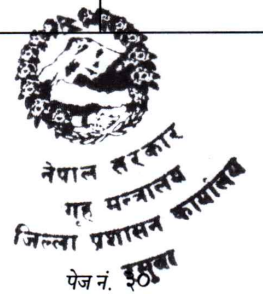 नेपाल सरकार
गृह मन्त्रालय
जिल्ला प्रशासन कार्यालय
पेज नं. ३०